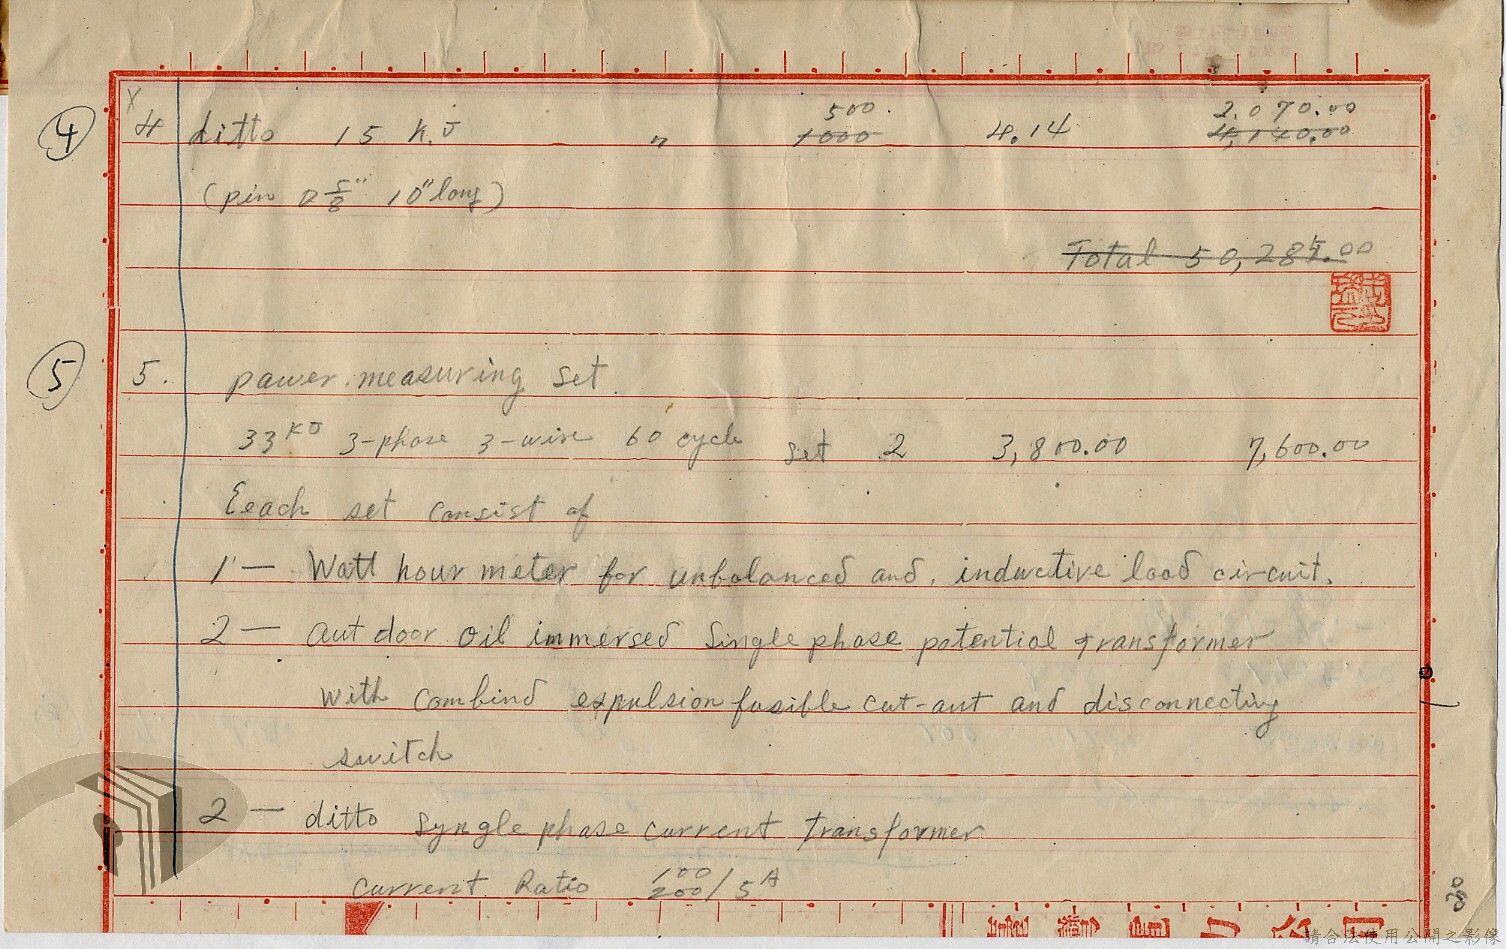 500 2,070.00
④ 4 ditto 15 K.V " 1000 4.14 4,140.00
(pin D 5/8" 10" long)
Total 50,285.00
⑤ 5. pawer measuring set
33 KV 3-phase 3-wire 60 cycle set 2 3,800.00 7,600.00
Eeach set consist of
1 — Watt hour meter for unbalanced and, inductive load circuit.
2 — aut door oil immersed single phase potential transformer
with combind expulsion fusible cut-aut and disconnecting
switch
2 — ditto syngle phase current transformer
current Ratio 100/200/5A
請合法使用公開之影像